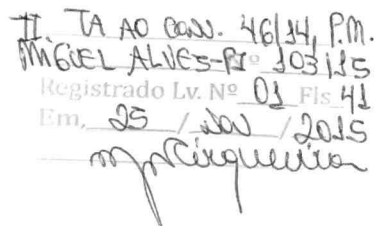 II. TA AO CONV. 46/14, P.M.
MIGUEL ALVES-PI Nº 103/15
Registrado Lv. Nº 01 Fls 41
Em, 25 / NOV / 2015